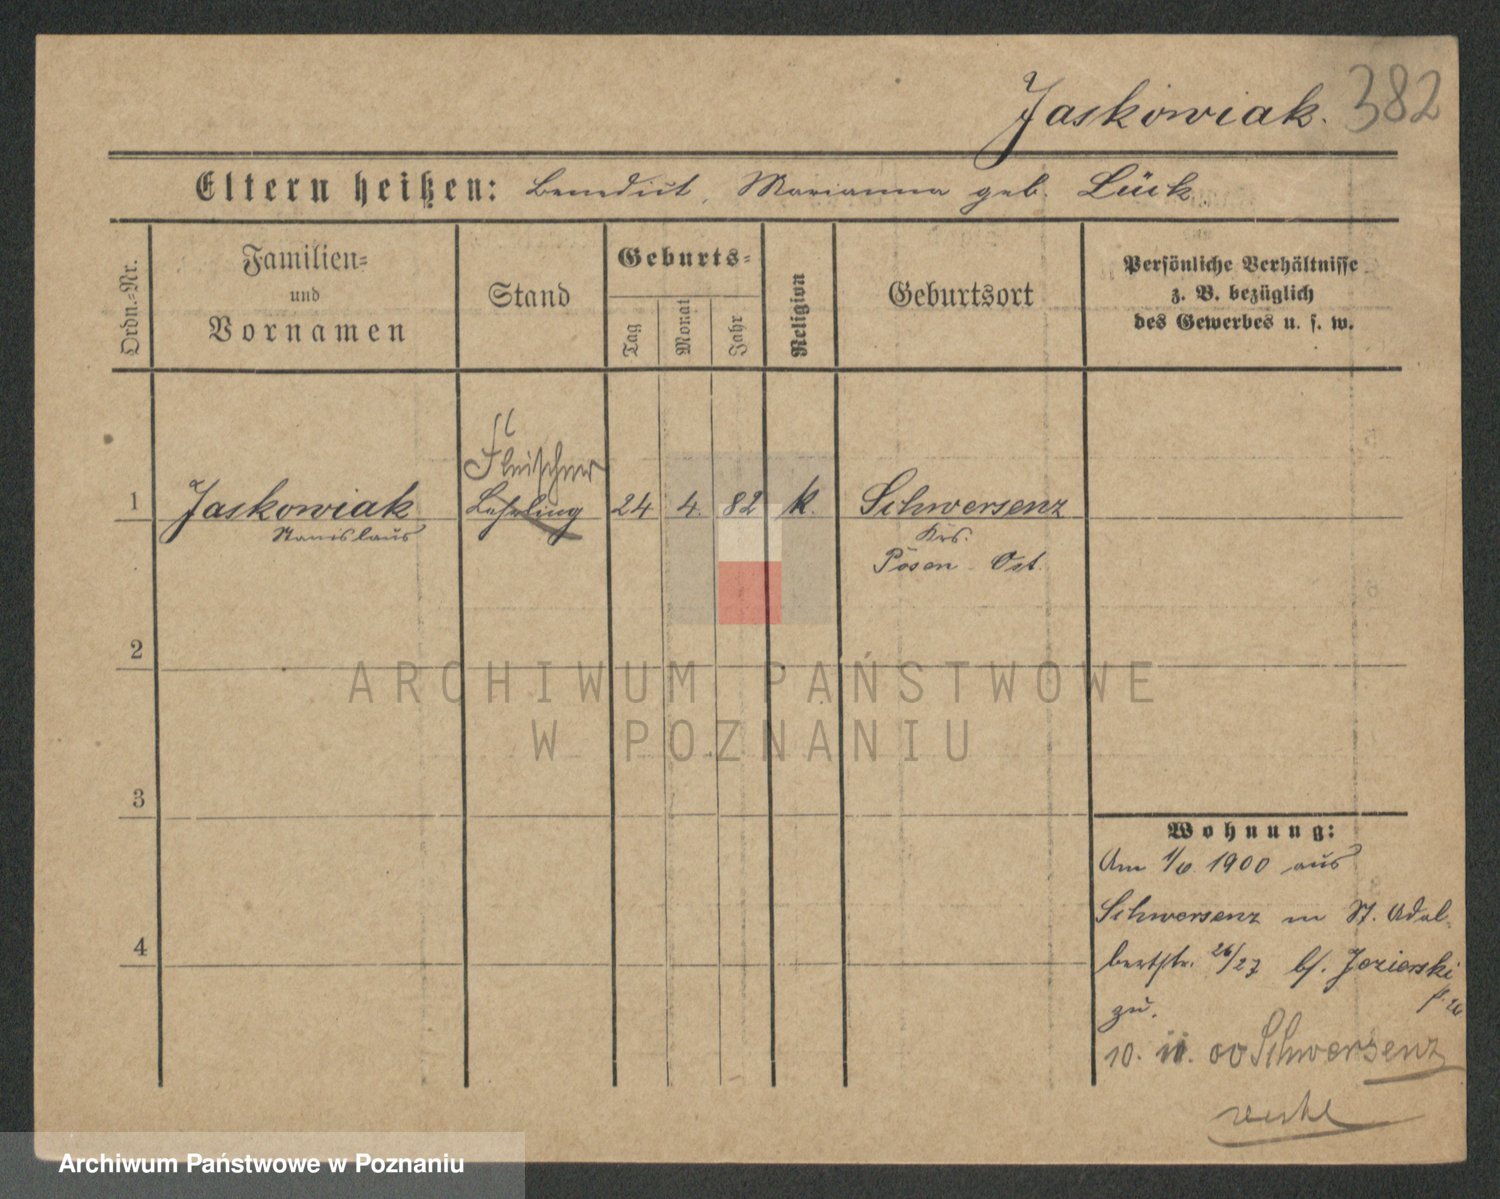 Jaskowiak. 382
Eltern heißen: Benedict, Marianna geb. Lück
Ordn.-Nr.
Familien-
und
Vornamen
Stand
Geburts-
Tag
Monat
Jahr
Religion
Geburtsort
Persönliche Verhältnisse
z. B. bezüglich
des Gewerbes u. s. w.
Fleischer
1 Jaskowiak Lehrling 24 4. 82 k. Schwersenz
Stanislaus Krs.
Posen Ost.
2
3
4
Wohnung:
Am 1900 aus
Schwersenz in St. Adal-
bertstr. 26/27 bf. Jezierski
zu.
10. 11. 00 Schwersenz
ARCHIWUM PAŃSTWOWE
W POZNANIU
Archiwum Państwowe w Poznaniu